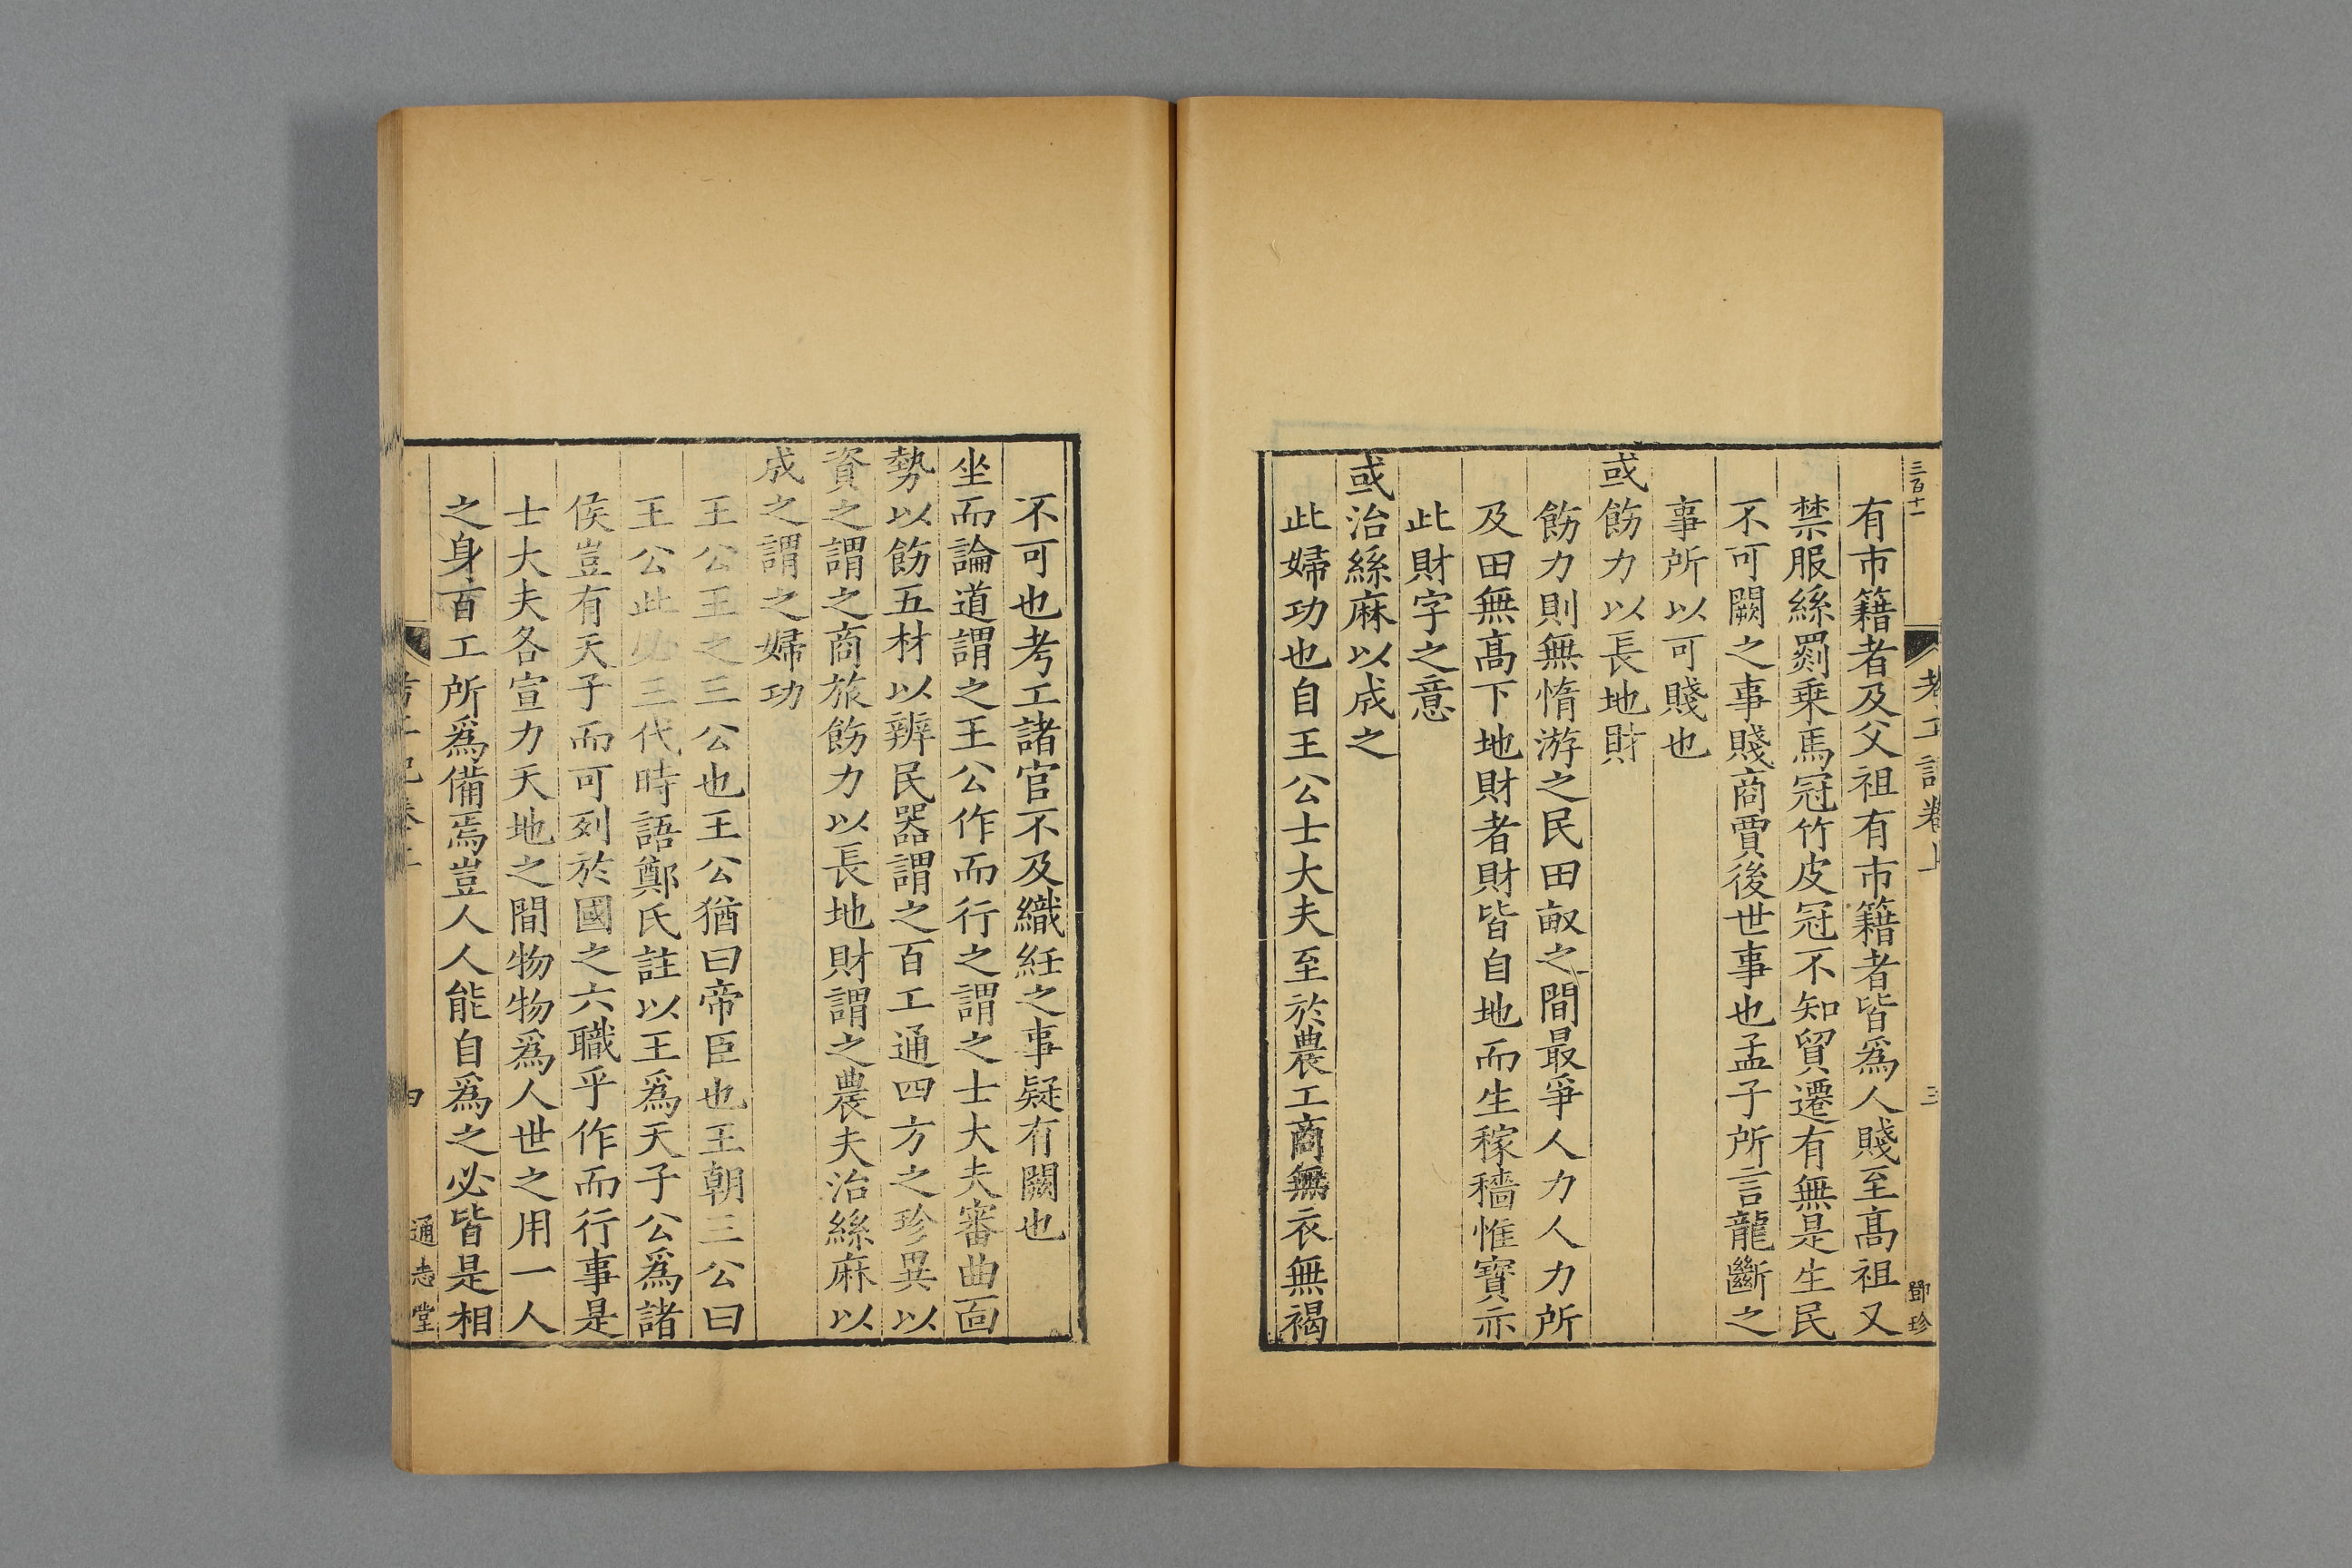 三百十一
考工記卷上
三
鄧珍
有市籍者及父祖有市籍者皆爲人賤至髙祖又
禁服絲罽乗馬冠竹皮冠不知貿遷有無是生民
不可闕之事賤商賈後世事也孟子所言龍斷之
事所以可賤也
或飭力以長地財
飭力則無惰游之民田畝之間最爭人力人力所
及田無髙下地財者財皆自地而生稼穡惟寳示
此財字之意
或治絲麻以成之
此婦功也自王公士大夫至於農工商無衣無褐
不可也考工諸官不及織紝之事疑有闕也
坐而論道謂之王公作而行之謂之士大夫審曲面
勢以飭五材以辨民器謂之百工通四方之珍異以
資之謂之商旅飭力以長地財謂之農夫治絲麻以
成之謂之婦功
王公王之三公也王公猶曰帝臣也王朝三公曰
王公此必三代時語鄭氏註以王爲天子公爲諸
侯豈有天子而可列於國之六職乎作而行事是
士大夫各宣力天地之間物物爲人世之用一人
之身百工所爲備焉豈人人能自爲之必皆是相
通志堂